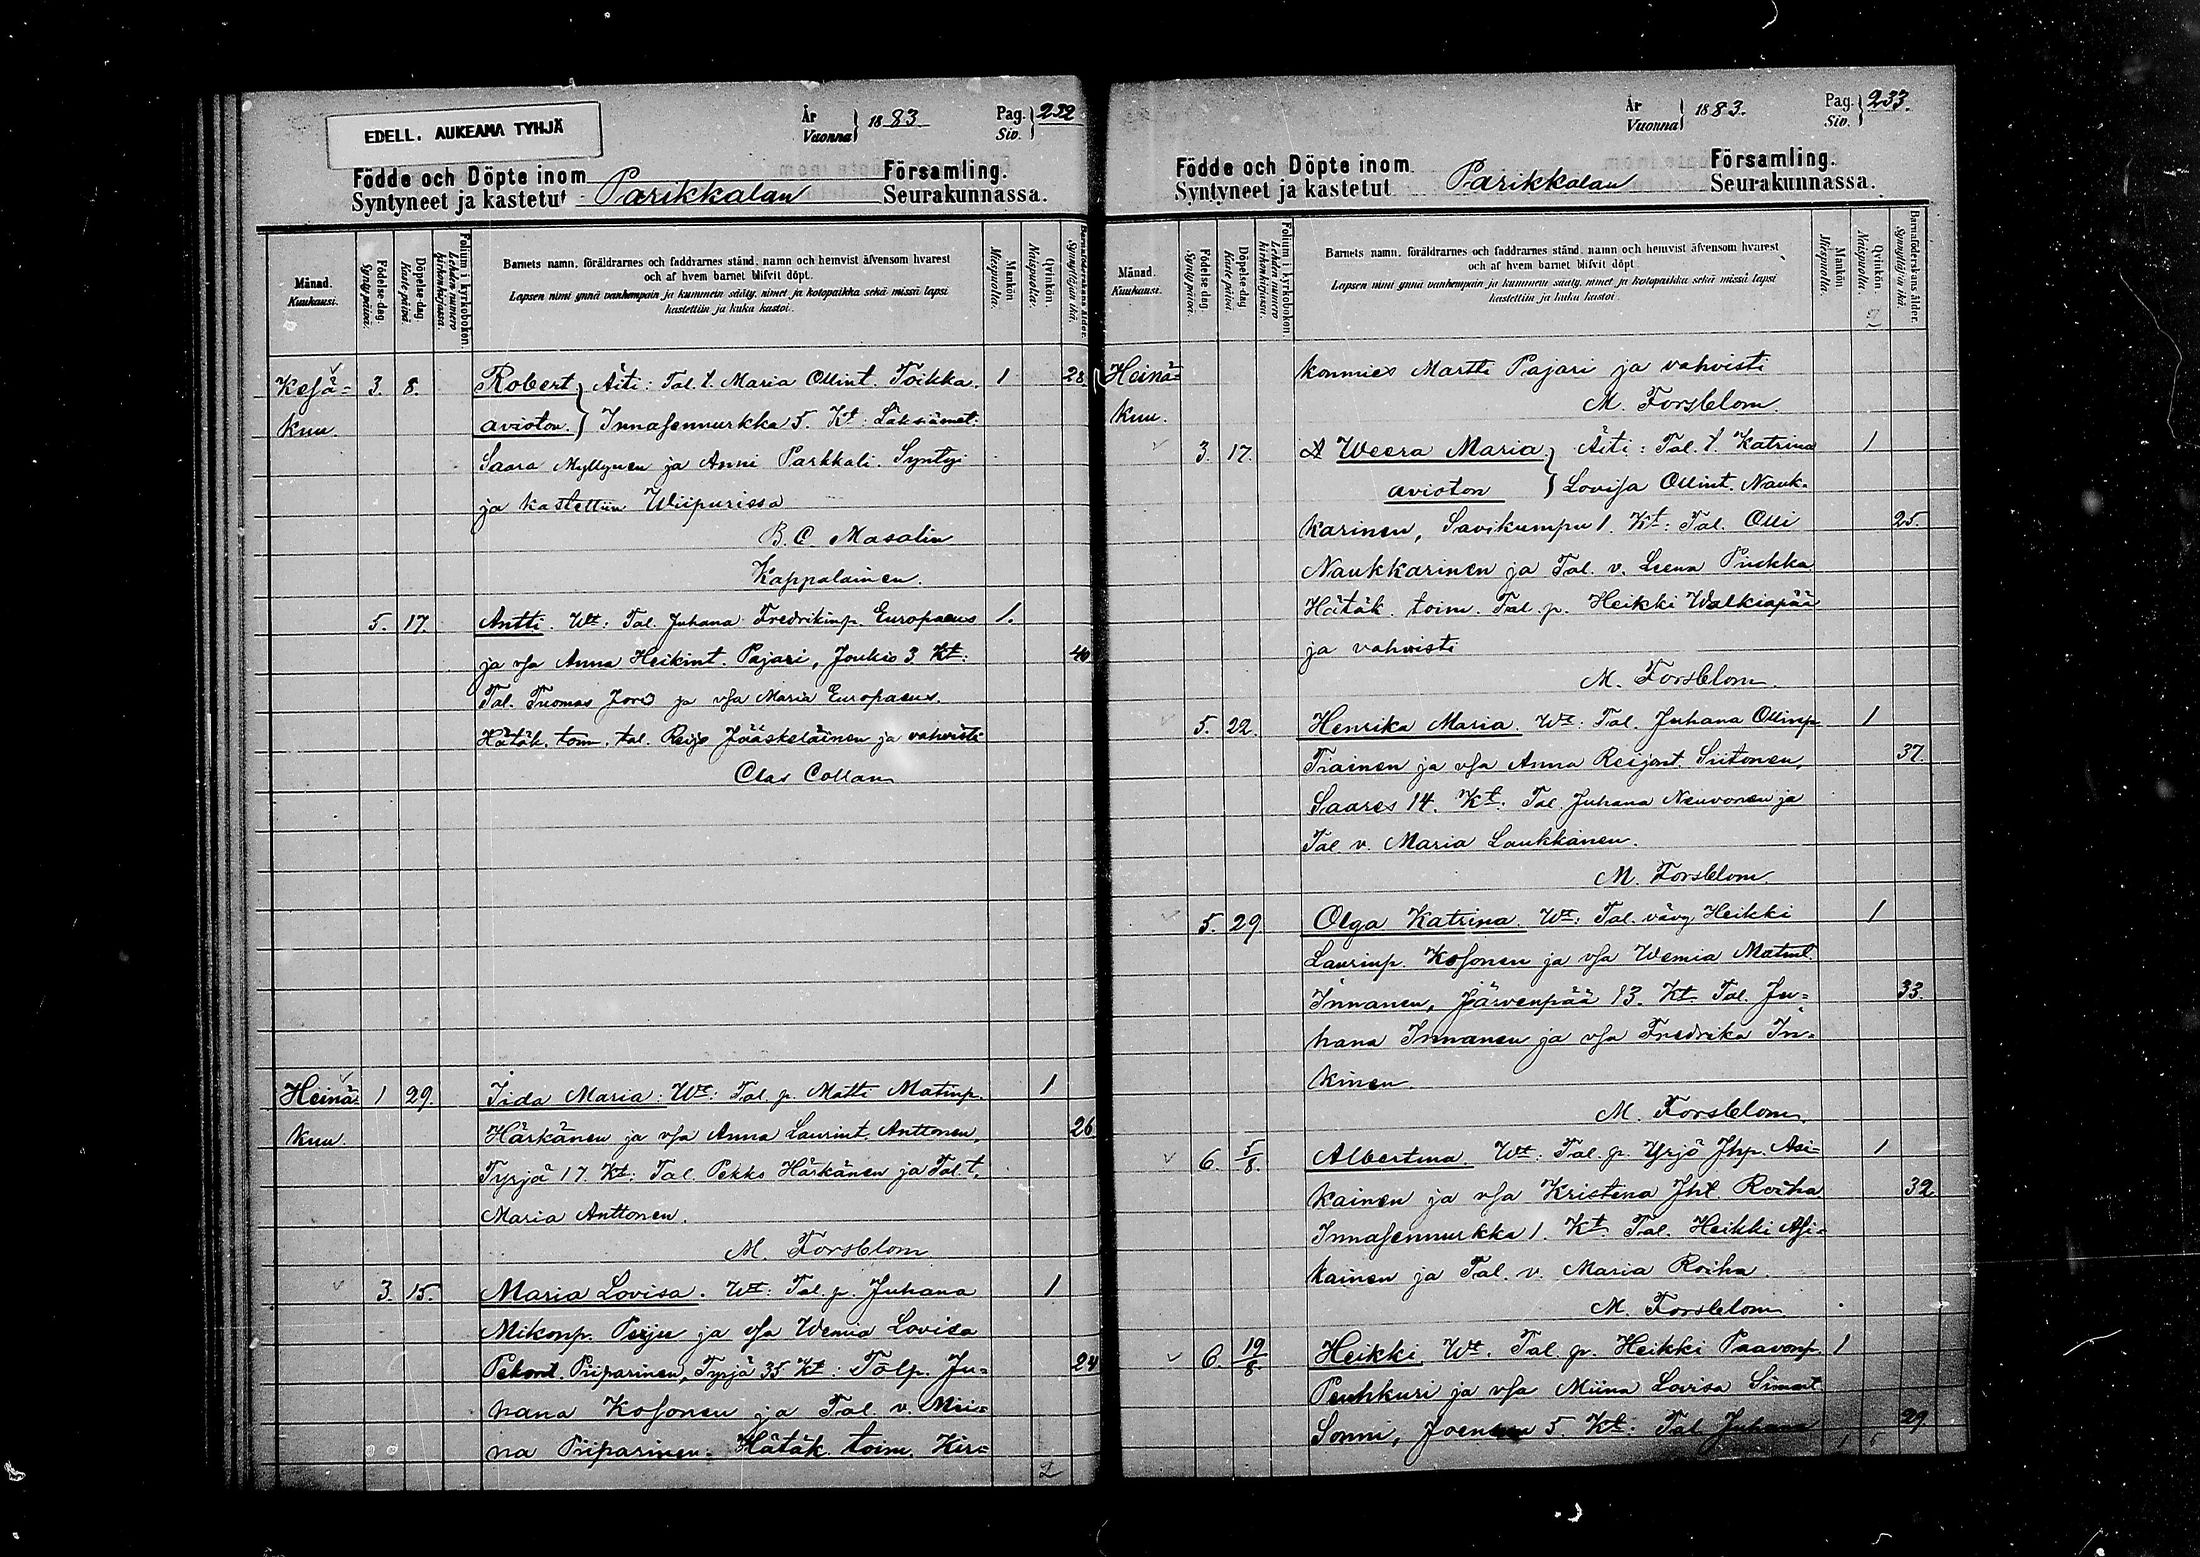 EDELL. AUKEAMA TYHJÄ
År
Vuonna 1883
Pag.
Siv. 232
Födde och Döpte inom Församling.
Syntyneet ja kastetut Parikkalan Seurakunnassa.
Månad.
Kuukausi.
Födelse-dag.
Synty päivä.
Döpelse-dag.
Kaste päivä.
Folium i kyrkoboken.
Lehden numero kirkonkirjassa.
Barnets namn, föräldrarnes och faddrarnes stånd, namn och hemvist äfvensom hvarest
och af hvem barnet blifvit döpt.
Lapsen nimi ynnä vanhempain ja kummein sääty, nimet ja kotopaikka sekä missä lapsi
kastettiin ja kuka kastoi.
Mankön.
Miespuolta.
Qvinkön.
Naispuolta.
Barnaföderskans ålder.
Synnyttäjän ikä.
Kesä= 3. 8. Robert Äiti: Tal. t. Maria Ollint. Toikka. 1 28.
kuu. avioton. Innasennurkka 5. Kt: Läksiämet:
Saara Myllynen ja Anni Parkkali. Syntyi
ja kastettiin Wiipurissa
B. C. Masalin
Kappalainen.
5. 17. Antti. Wt: Tal. Juhana Fredrikinp. Europaeus 1.
ja vsa Anna Heikint. Pajari, Joukio 3 Kt: 40
Tal. Tuomas ja vsa Maria Europaeus.
Hätäk. toim. tal. Reijo Jääskeläinen ja vahvisti
Clas Collan
Heinä= 1 29. Iida Maria. Wt: Tal. p. Matti Matinp. 1
kuu. Härkänen ja vsa Anna Laurint. Anttonen, 26
Tyrjä 17. Kt: Tal. Pekko Härkänen ja Tal. t.
Maria Anttonen.
M. Forsblom
3. 15. Maria Lovisa. Wt: Tal. p. Juhana 1
Mikonp. Peiju ja vsa Wemia Lovisa
Pekont. Piiparinen, Tyrjä 35 Kt: Talp. Ju= 24
hana Kosonen ja Tal. v. Mii=
na Piiparinen. Hätäk. toim. Kir=
2
År
Vuonna 1883.
Pag.
Siv. 233.
Födde och Döpte inom Församling.
Syntyneet ja kastetut Parikkalan Seurakunnassa.
Månad.
Kuukausi.
Födelse-dag.
Synty päivä.
Döpelse-dag.
Kaste päivä.
Folium i kyrkoboken.
Lehden numero kirkonkirjassa.
Barnets namn, föräldrarnes och faddrarnes stånd, namn och hemvist äfvensom hvarest
och af hvem barnet blifvit döpt.
Lapsen nimi ynnä vanhempain ja kummein sääty, nimet ja kotopaikka sekä missä lapsi
kastettiin ja kuka kastoi.
Mankön
Miespuolta.
Qvinkön.
Naispuolta.
2
Barnaföderskans ålder.
Synnyttäjän ikä.
Heinä= konmies Martti Pajari ja vahvisti
kuu. M. Forsblom.
3. 17. Weera Maria Äiti: Tal. t. Katrina 1
avioton Lovisa Ollint. Nauk=
karinen, Savikumpu 1. Kt: Tal. Olli 25.
Naukkarinen ja Tal. v. Leena Pirkka
Hätäk. toim. Tal. p. Heikki Walkiapää
ja vahvisti
M. Forsblom.
5. 22. Henrika Maria. Wt: Tal. Juhana Ollinp. 1
Tiainen ja vsa Anna Reijont. Siitonen, 37.
Saares 14. Kt: Tal. Juhana Neuvonen ja
Tal. v. Maria Laukkanen.
M. Forsblom.
5. 29. Olga Katrina. Wt: Tal. vävy Heikki 1
Laurinp. Kosonen ja vsa Wemia Matint.
Innanen, Järvenpää 13. Kt. Tal. Ju= 33.
hana Innanen ja vsa Fredrika In=
kinen.
M. Forsblom.
6. 5/8. Albertina. Wt: Tal. p. Yrjö Jhp. Asi= 1
kainen ja vsa Kristina Jht. Roiha 32
Innasennurkka 1. Kt: Tal. Heikki Asi=
kainen ja Tal. v. Maria Roiha.
M. Forsblom
6. 19/8 Heikki. Wt. Tal. p. Heikki Paavonp. 1
Peuhkuri ja vsa Miina Lovisa Simont.
Sonni, 5. Kt: Tal. Juhana 29